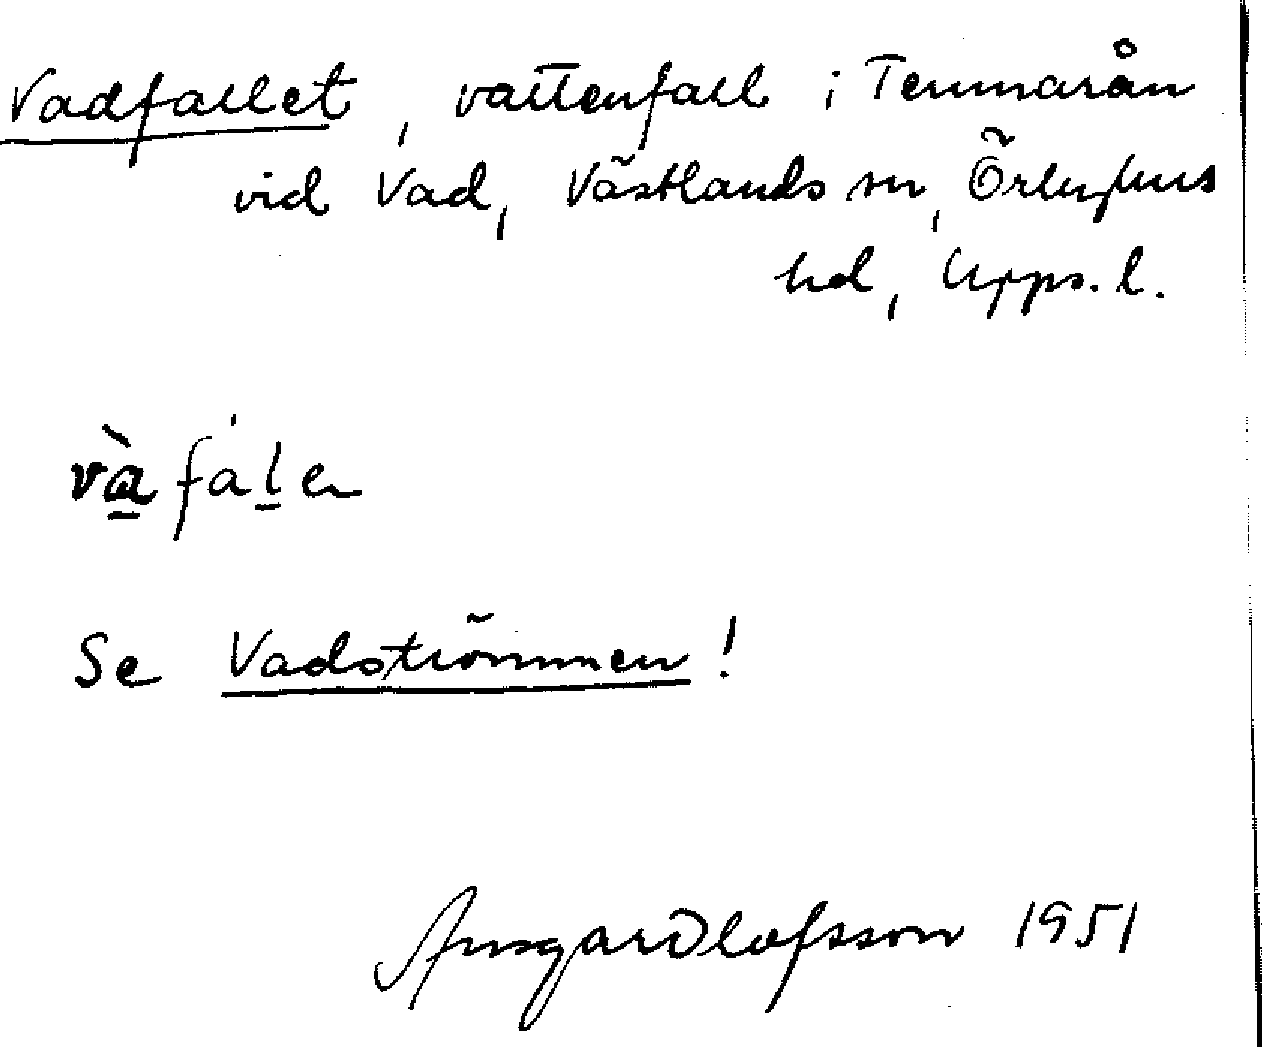 Vadfallet, vattenfall i Temnarån
vid Vad, Västlands sn, Örbyhus
hd, Upps. l.
và fa̍l̠en
Se Vadströmmen!
Ansgar Olofsson 1951